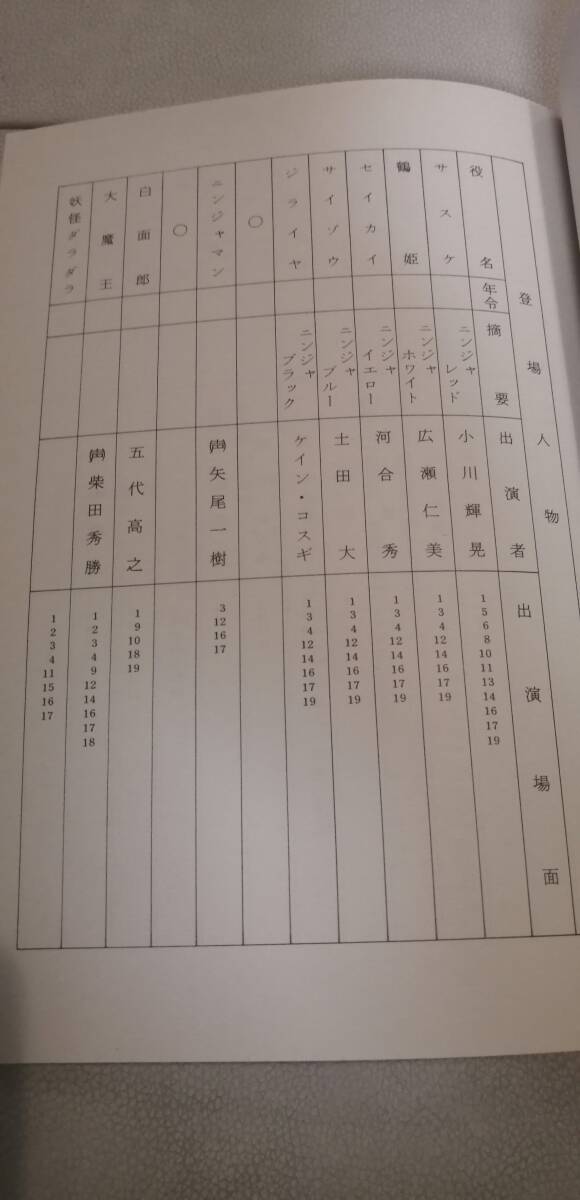 登場人物
役名
年令
摘要
出演者
出演場面
サスケ
ニンジャレッド
小川輝晃
1 5 6 8 10 11 13 14 16 17 19
鶴姫
ニンジャホワイト
広瀬仁美
1 3 4 12 14 16 17 19
セイカイ
ニンジャイエロー
河合秀
1 3 4 12 14 16 17 19
サイゾウ
ニンジャブルー
土田大
1 3 4 12 14 16 17 19
ジライヤ
ニンジャブラック
ケイン・コスギ
1 3 4 12 14 16 17 19
○
ニンジャマン
(声)矢尾一樹
3 12 16 17
○
白面郎
五代高之
1 9 10 18 19
大魔王
(声)柴田秀勝
1 2 3 4 9 12 14 16 17 18
妖怪ダラダラ
1 2 3 4 11 15 16 17